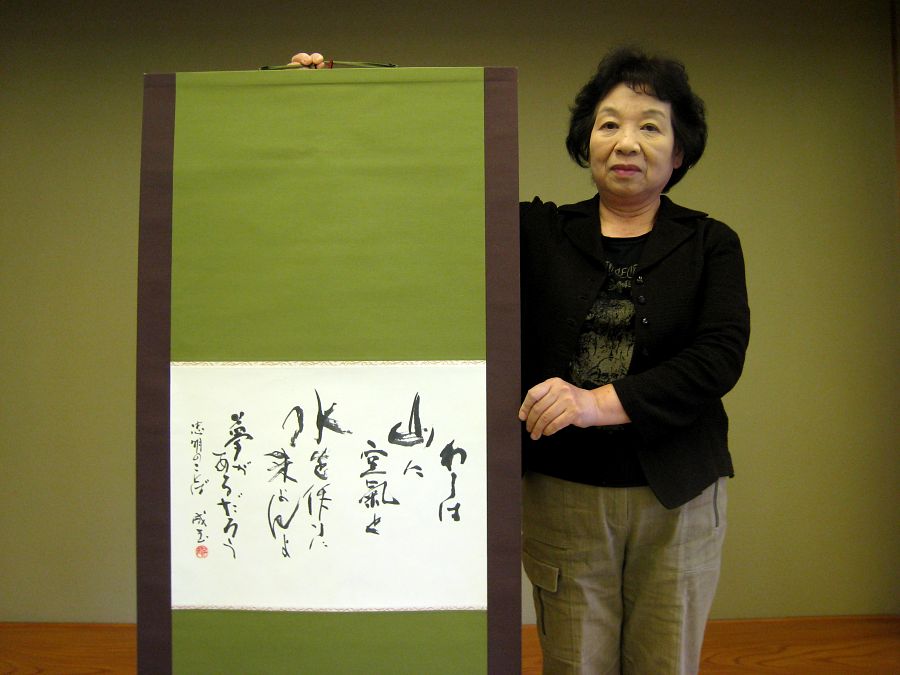 わしは
山に
空氣と
水を作りに
来よんよ
夢が
あるだろう
明のことば